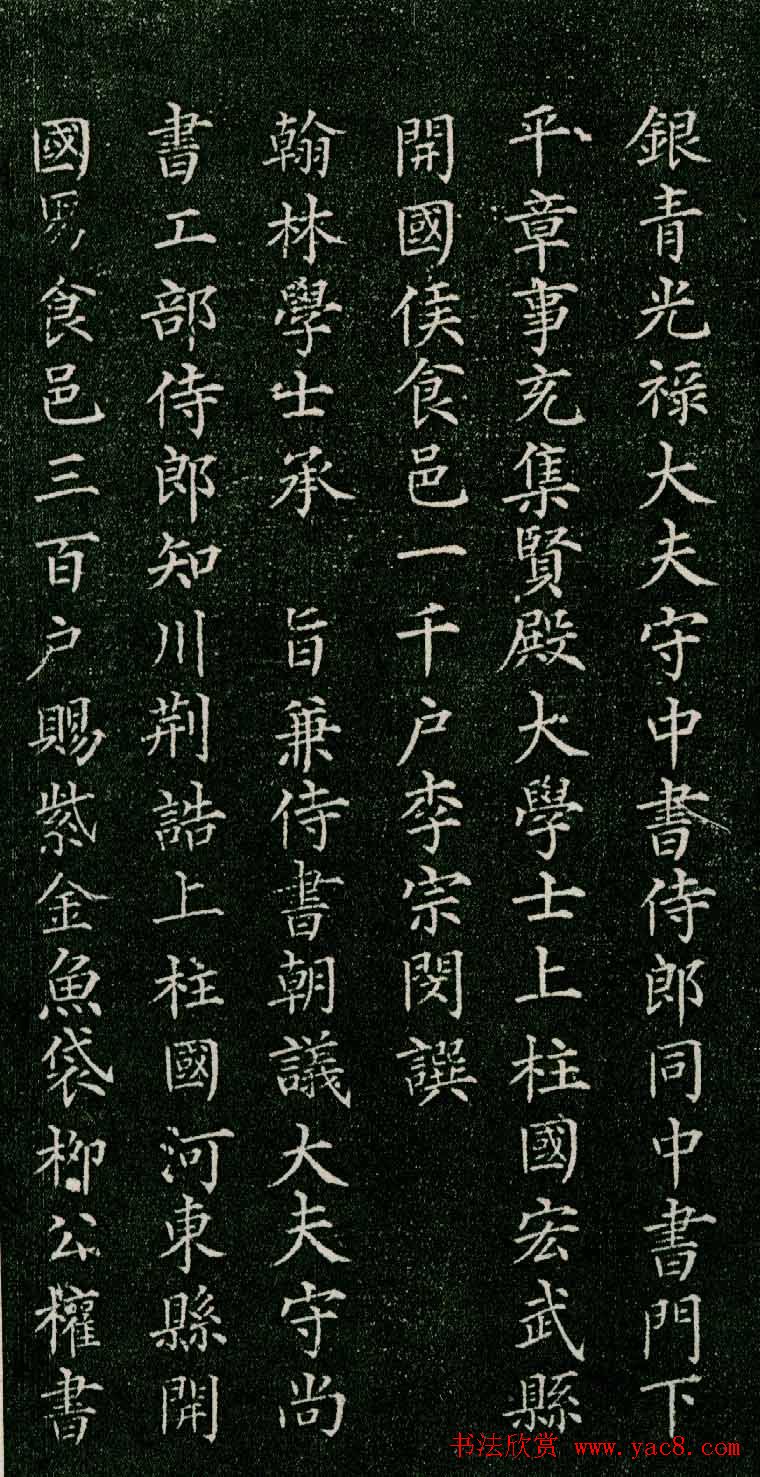 銀青光祿大夫守中書侍郎同中書門下
平章事充集賢殿大學士上柱國宏武縣
開國侯食邑一千户李宗閔譔
翰林學士承 旨兼侍書朝議大夫守尚
書工部侍郎知川荆誥上柱國河東縣開
國男食邑三百户賜紫金魚袋柳公權書
书法欣赏 www.yac8.com